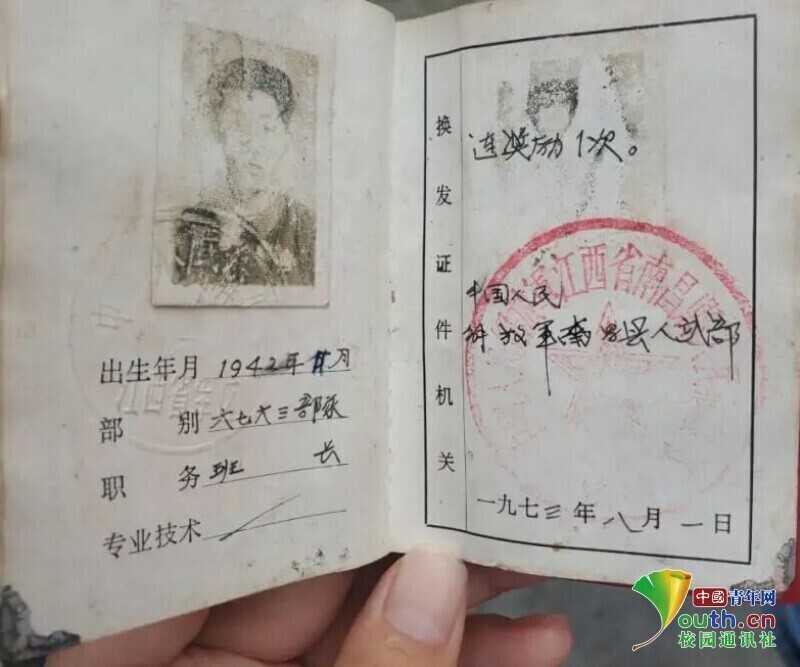 出生年月 1942年 月
部别 六七六三部队
职务 班长
专业技术
换发证件机关
连奖励1次。
江西省南昌
中国人民
解放军南昌县人武部
一九七三年八月一日
江西省军区
中国青年网
youth.cn
校园通讯社